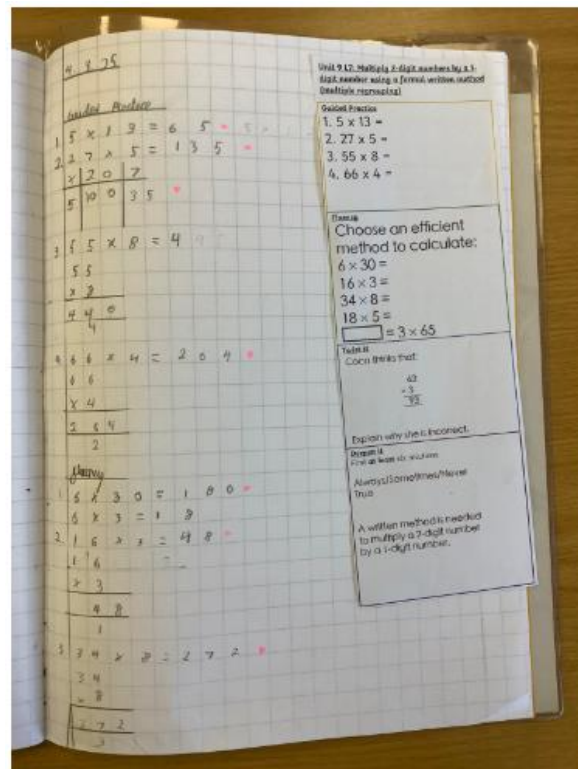 4.3.25
Guided Practice
1. 5 x 13 = 65
2. 27 x 5 = 135
x | 20 | 7
5 | 100 | 35
3. 55 x 8 = 4
55
x 8
440
4
4. 66 x 4 = 264
66
x 4
264
2
Fluency
1. 6 x 30 = 180
6 x 3 = 18
2. 16 x 3 = 48
16
x 3
48
1
3. 34 x 8 = 272
34
x 8
272
3
Unit 9 L7: Multiply 2-digit numbers by a 1-
digit number using a formal written method
(multiple regrouping)
Guided Practice
1. 5 x 13 =
2. 27 x 5 =
3. 55 x 8 =
4. 66 x 4 =
Choose an efficient
method to calculate:
6 × 30 =
16 × 3 =
34 × 8 =
18 × 5 =
= 3 × 65
Twist it
Coco thinks that:
× 3
92
Explain why she is incorrect.
Reason it
Find at least six solutions
Always/Sometimes/Never
True
A written method is needed
to multiply a 2-digit number
by a 1-digit number.